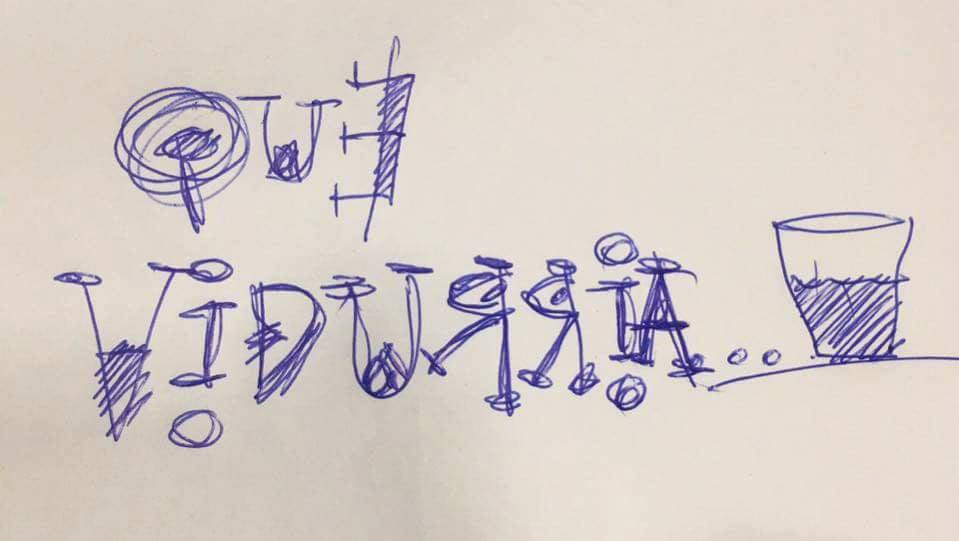 QUE
VIDURRIA...